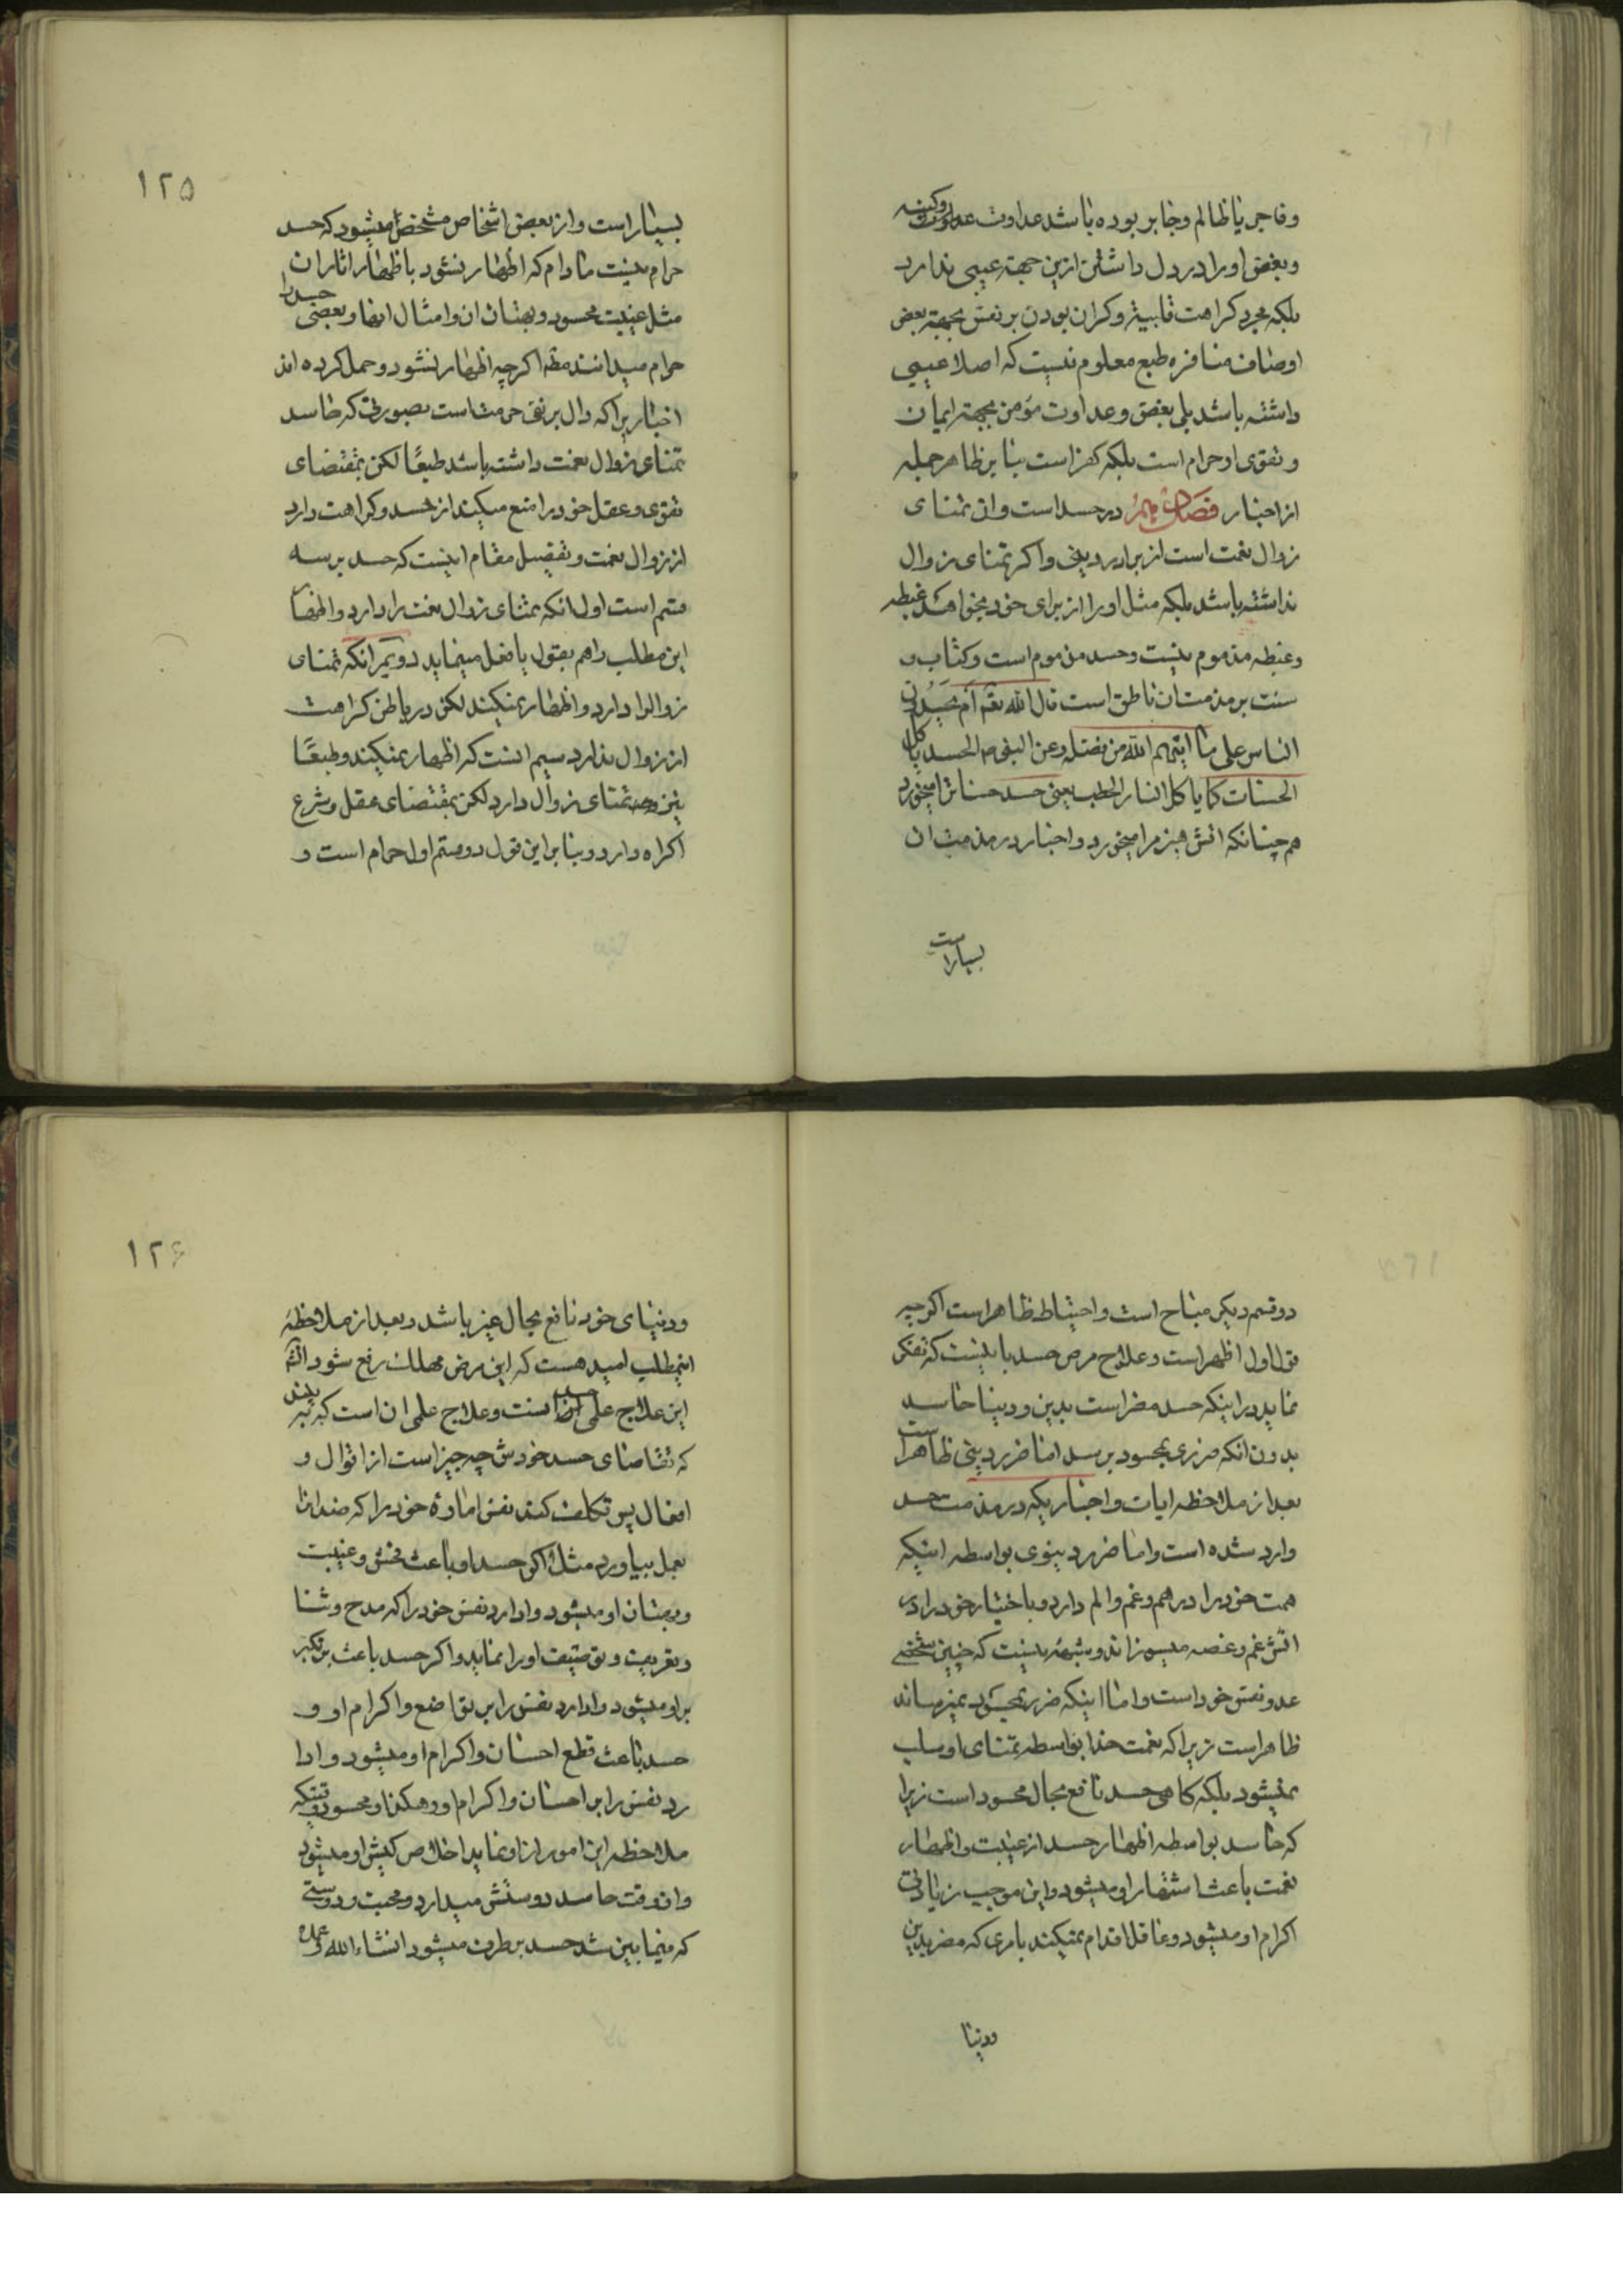 و فاجر یا ظالم و جابر بوده باشد عداوت و کینه
و بغض او را در دل داشتن ازین جهة عیبی ندارد
بلکه مجرد کراهت قلبیة و کران بودن بر نفس بجهة بعض
اوصاف منافره طبع معلوم نیست که اصلا عیبی
داشته باشد بلی بغض و عداوت مؤمن بجهة ایمان
و تقوی او حرام است بلکه کفر است بنا بر ظاهر جمله
از اخبار فصل در حسد است و ان تمنای
زوال نعمت است از برادر دینی و اکر تمنای زوال
نداشته باشد بلکه مثل او را از برای خود بخواهد غبطه
و غبطه مذموم نیست و حسد مذموم است و کتاب و
سنت بر مذمت ان ناطق است قال الله تعم ام یحسدون
الناس علی ما اتیهم الله من فضله و عن النبی ص الحسد یاکل
الحسنات کما یاکل النار الحطب یعنی حسد حسنات را میخورد
هم چنانکه اتش هیزم را میخورد و اخبار در مذمت ان
بسیار است
۱۲۵
بسیار است و از بعض اشخاص مشخص میشود که حسد
حرام نیست مادام که اظهار نشود با ظهار اثار ان
مثل غیبت محسود و بهتان ان و امثال انها و بعضی حسد را
حرام میدانند مطم اکرچه اظهار نشود و حمل کرده اند
اخباریرا که دال بر نفی حرمت است بصورتی که حاسد
تمنای زوال نعمت داشته باشد طبعًا لکن بمقتضای
تقوی و عقل خود را منع میکند از حسد و کراهت دارد
از زوال نعمت و تفصیل مقام اینست که حسد بر سه
قسم است اول انکه تمنای زوال نعمت را دارد و اظهار
این مطلب را هم بقول یا فعل مینماید دویم انکه تمنای
زوال را دارد و اظهار نمیکند لکن در باطن کراهت
از زوال ندارد سیم انست که اظهار نمیکند و طبعًا
تمنای زوال دارد لکن بمقتضای عقل و شرع
اکراه دارد و بنا بر این قول دو قسم اول حرام است و
دو قسم دیکر مباح است و احتیاط ظاهر است اکرچه
قول اول اظهر است و علاج مرض حسد باینست که تفکر
نماید در اینکه حسد مضر است بدین و دنیا حاسد
بدون انکه ضرری بمحسود برسد اما ضرر دینی ظاهر است
بعد از ملاحظه ایات و اخباریکه در مذمت حسد
وارد شده است و اما ضرر دینوی بواسطه اینکه
همت خود را در هم و غم و الم دارد و باختیار خود را در
اتش غم و غصه میسوزاند و شبهه نیست که چنین شخصی
عدو نفس خود است و اما اینکه ضرر بمحسود نمیرساند
ظاهر است زیرا که نعمت خدا بواسطه تمنای او سلب
نمیشود بلکه کاهی حسد نافع بحال محسود است زیرا
که حاسد بواسطه اظهار حسد از غیبت و اظهار
نعمت باعث اشتهار او میشود و این موجب زیادتی
اکرام او میشود و عاقل اقدام نمیکند بامری که مضر بدین
و دنیا
۱۲۶
و دنیای خود نافع بحال غیر باشد و بعد از ملاحظه
اینمطلب امید هست که این مرض مهلک رفع شود انشم
این علاج علمی حسد است و علاج عملی ان است که به بیند
که تقاضای حسد خودش چه چیز است از اقوال و
افعال پس تکلف کند نفس اماره خود را که ضد انرا
بعمل بیاورد مثل اکر حسد او باعث فحش و غیبت
و بهتان او میشود وادارد نفس خود را که مدح و ثنا
و تعریف و توصیف او را نماید و اکر حسد باعث بر تکبر
بر او میشود وادارد نفس را بر تواضع و اکرام او و
حسد باعث قطع احسان و اکرام او میشود وادا
رد نفس را بر احسان و اکرام او و هکذا و محسود وقتیکه
ملاحظه این امور را از او نماید اخلاص کیش او میشود
و ان وقت حاسد دوستش میدارد و محبت و دوستی
که فیما بین شد حسد بر طرف میشود انشاء الله و عمده